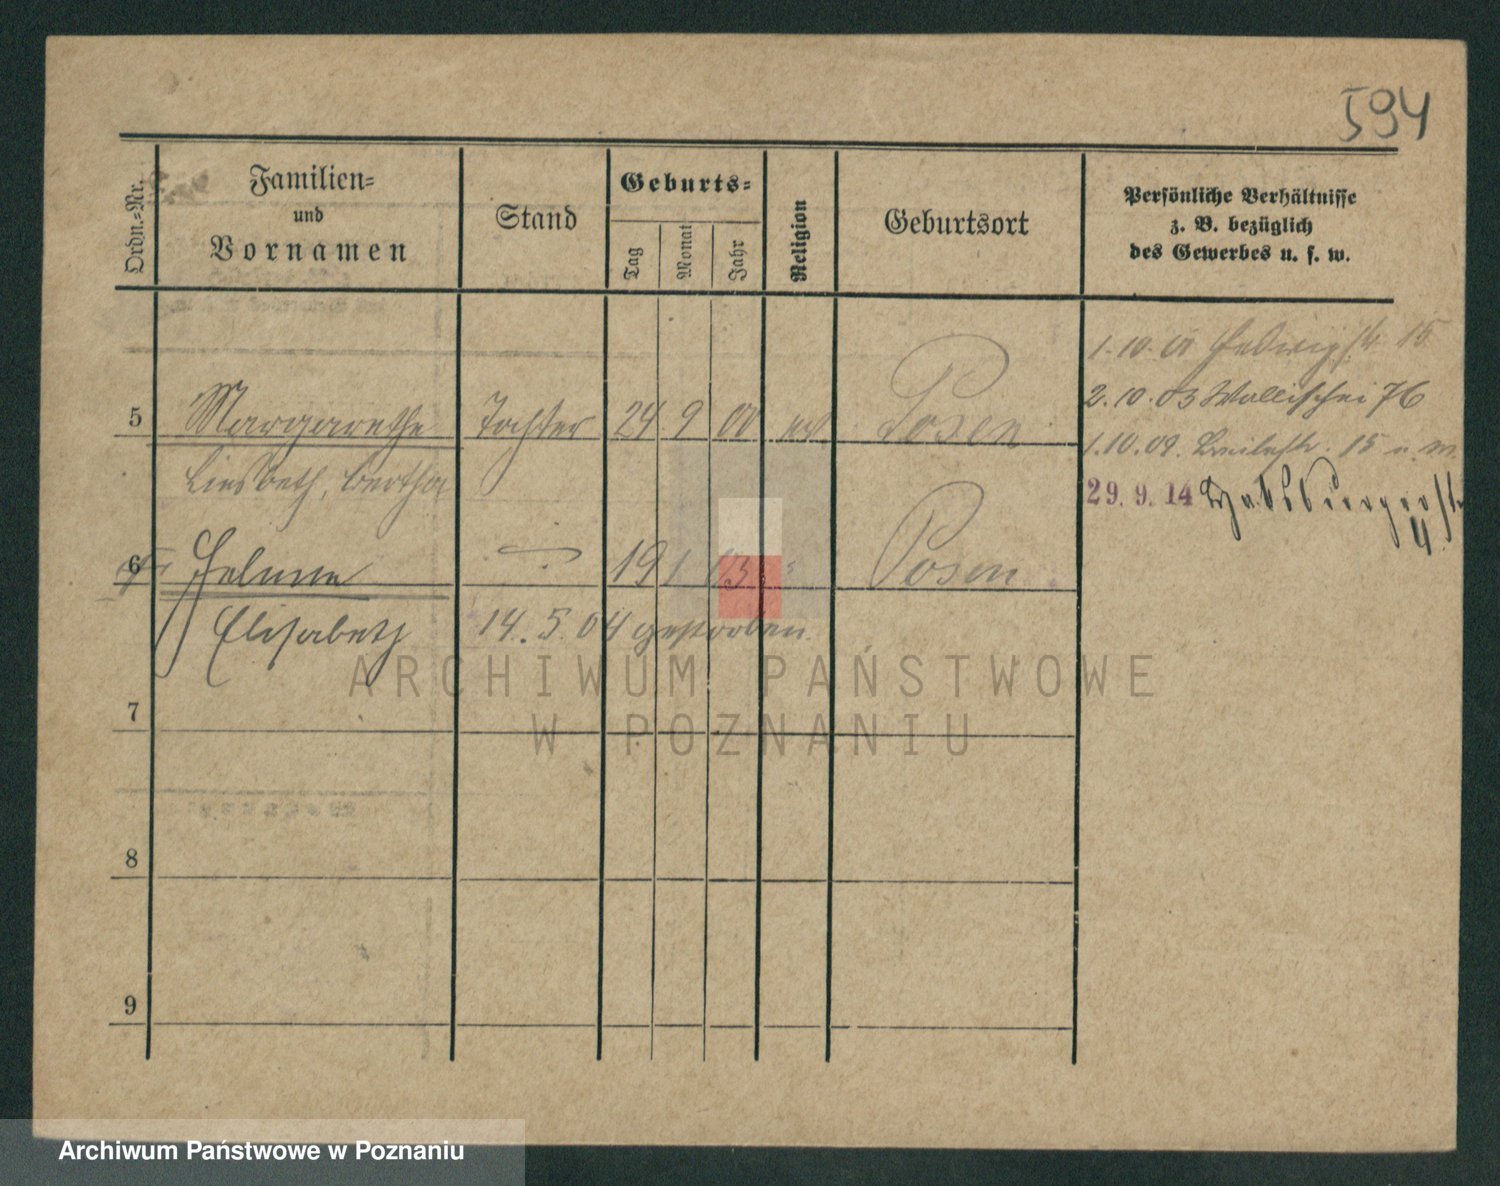 594
Ordn.-Nr.
Familien-
und
Vornamen
Stand
Geburts-
Tag
Monat
Jahr
Religion
Geburtsort
Persönliche Verhältnisse
z. B. bezüglich
des Gewerbes u. s. w.
1.10.01 Hedwigstr. 15
2.10.03 Wallischei 76
5 Margarethe Tochter 24 9 00 Posen
1.10.09. 15
Liesbeth, Bertha
29. 9. 14 Habsburgerstr.
4
6 Helene 19 1 03 Posen
Elisabeth 14. 5. 04 gestorben
ARCHIWUM PAŃSTWOWE
W POZNANIU
7
8
9
Archiwum Państwowe w Poznaniu